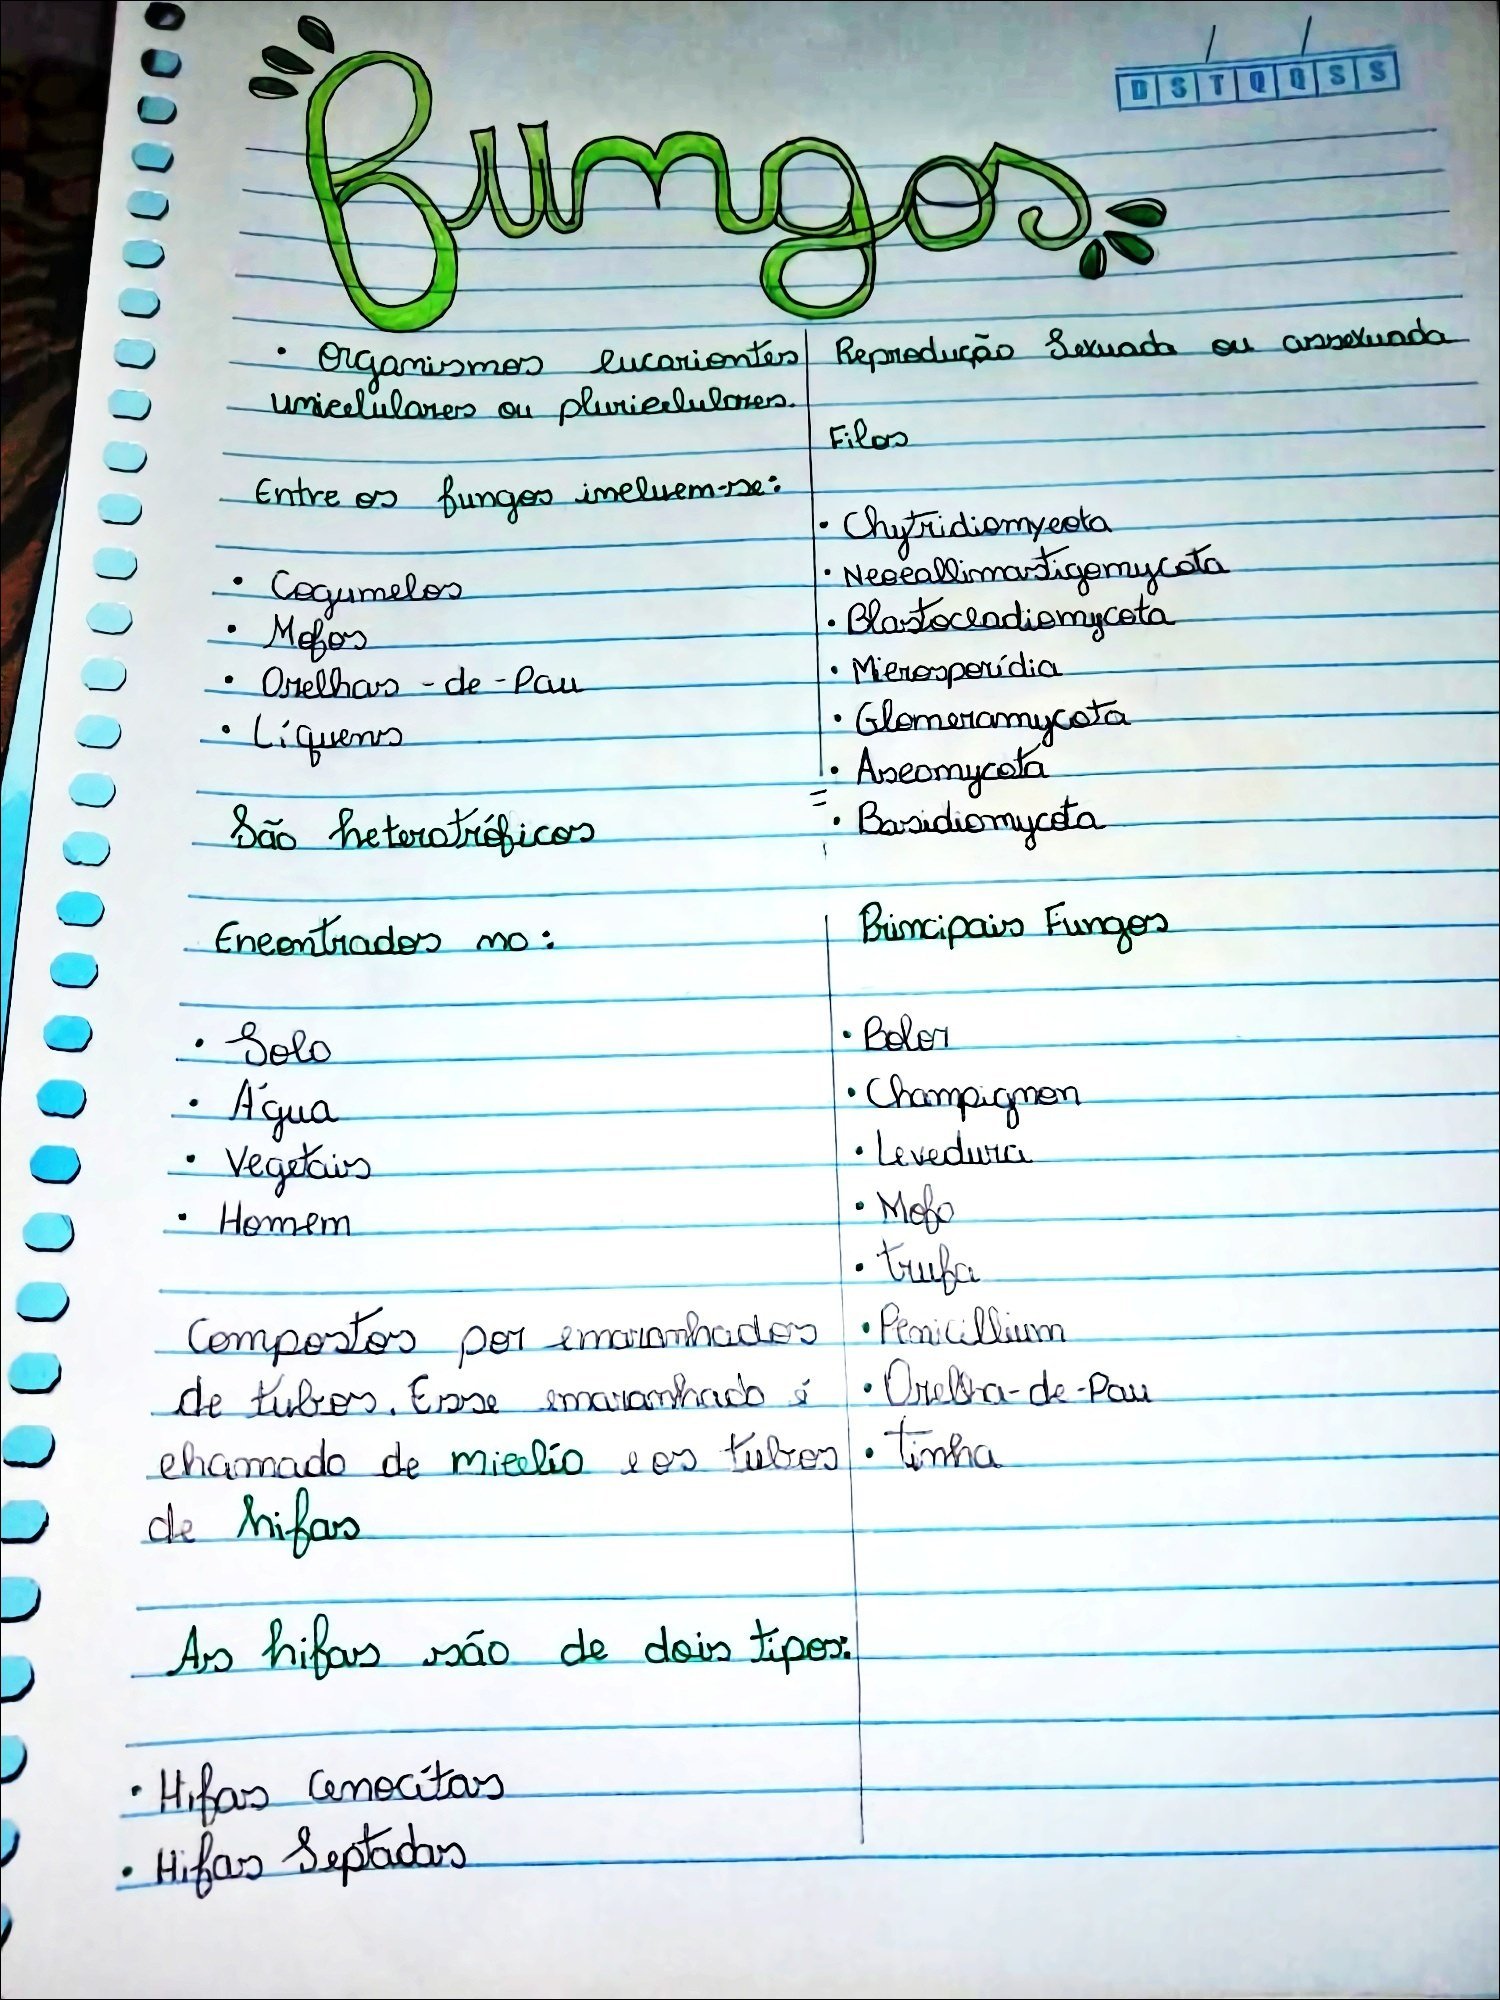 Fungos
D S T Q Q S S
• Organismos eucariontes
unicelulares ou pluricelulares.
Entre os fungos incluem-se:
• Cogumelos
• Mofos
• Orelhas-de-Pau
• Líquens
São heterotróficos
Encontrados no:
• Solo
• Água
• Vegetais
• Homem
Compostos por emaranhados
de tubos. Esse emaranhado é
chamado de micélio e os tubos
de hifas
As hifas são de dois tipos:
• Hifas Cenocítas
• Hifas Septadas
Reprodução Sexuada ou assexuada
Filos
• Chytridiomycota
• Neocallimastigomycota
• Blastocladiomycota
• Microsporídia
• Glomeramycota
• Ascomycota
• Basidiomycota
Principais Fungos
• Bolor
• Champignon
• Levedura
• Mofo
• trufa
• Penicillium
• Orelha-de-Pau
• tinha